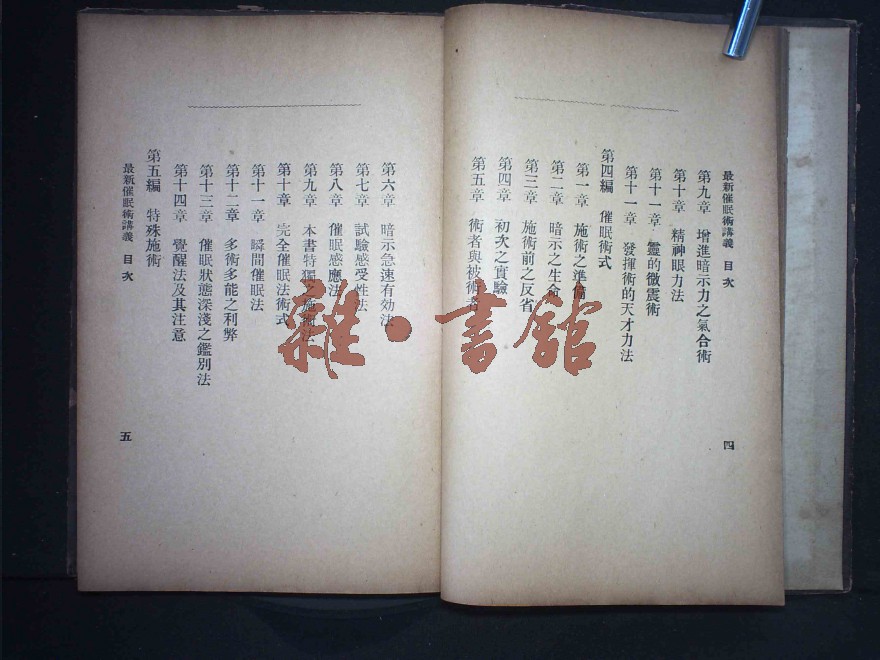 最新催眠術講義　目次
第九章　增進暗示力之氣合術
第十章　精神眼力法
第十一章　靈的微震術
第十一章　發揮術的天才力法
第四編　催眠術式
第一章　施術之準備
第二章　暗示之生命
第三章　施術前之反省
第四章　初次之實驗
第五章　術者與被術者
四
第六章　暗示急速有効法
第七章　試驗感受性法
第八章　催眠感應法
第九章　本書特獨之施術法
第十章　完全催眠法術式
第十一章　瞬間催眠法
第十二章　多術多能之利弊
第十三章　催眠狀態深淺之鑑別法
第十四章　覺醒法及其注意
第五編　特殊施術
最新催眠術講義　目次
五
雜·書館